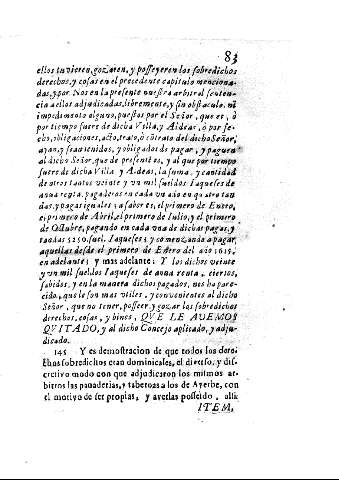 83
ellos tuvieren, gozaren, y possyeren los sobredichos
derechos, y cosas en el presente capitulo menciona-
das, y por Nos en la presente nuestra arbitral senten-
cia a ellos adjudicadas, libremente, y sin obstaculo, ni
impedimento alguno, puestos por el Señor, que es, ò
por tiempo fuere de dicha Villa, y Aldeas, ò por fe-
chos, obligaciones, acto, trato, ò cõtrato del dicho Señor,
ayan, y sean tenidos, y obligados de pagar, y paguen
al dicho Señor, que de present es, y al que por tiempo
fuere de dicha Villa, y Aldeas, la suma, y cantidad
de otros tantos veinte y un mil sueldos Iaqueses de
anua renta, pagaderos en cada un año en quatro tan-
das, y pagas iguales; a saber es, el primero de Enero,
el primero de Abril, el primero de Iulio, y el primero
de Octubre, pagando en cada una de dichas pagas, y
tandas 5250. suel. Iaqueses; y començando a pagar
aquellas desde el primero de Enero del año 1615.
en adelante; y mas adelante: Y los dichos veinte
y un mil sueldos Iaqueses de anua renta, ciertos,
sabidos, y en la manera dichos pagados, nos ha pare-
cido, que le son mas utiles, y convenientes al dicho
Señor, que no tener, posseer, y gozar los sobredichos
derechos, cosas, y bines, QVE LE AVEMOS
QVITADO, y al dicho Concejo aplicado, y adju-
dicado.
145 Y es demostracion de que todos los dere-
chos sobredichos eran dominicales, el diverso, y dis-
cretivo modo con que adjudicaron los mismos ar-
bitros las panaderias, y tabernas a los de Ayerbe, con
el motivo de ser propias, y averlas posseido, alli:
ITEM,